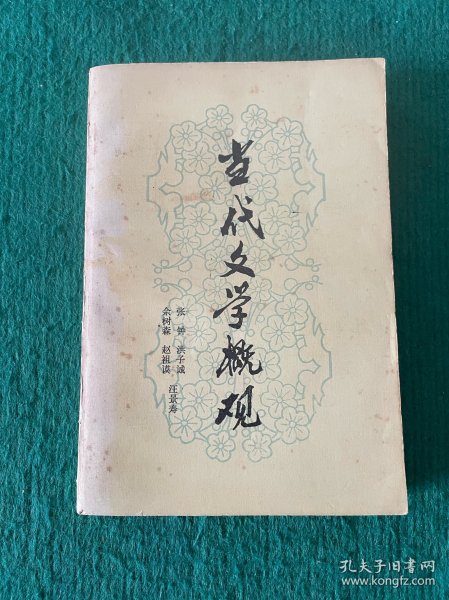 当代文学概观
张钟 洪子诚
佘树森 赵祖谟 汪景寿
孔夫子旧书网
www.kongfz.com